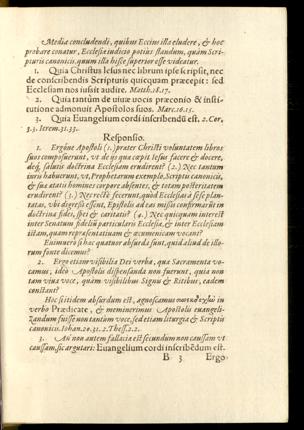 Media concludendi, quibus Eccius illa eludere, & hoc
probare conatur, Ecclesiæ iudicio potius standum, quàm Scri-
pturis canonicis, quum illa hisce superior esse videatur.
1. Quia Christus Iesus nec librum ipse scripsit, nec
de conscribendis Scripturis quicquam præcepit: sed
Ecclesiam nos iussit audire. Matth.18.17.
2. Quia tantùm de viuæ vocis præconio & insti-
tutione admonuit Apostolos suos. Marc.16.15.
3. Quia Euangelium cordi inscribendū est. 2. Cor.
3.3. Ierem.31.33.
Responsio.
1. Ergóne Apostoli (1.) præter Christi voluntatem libros
suos composuerunt, vt de ijs quæ cœpit Iesus facere & docere,
deq; salutis doctrina Ecclesiam erudirent? (2.) Nec tantum
iuris habucrunt, vt, Prophetarum exemplo, Scriptu canonicis,
& suæ ætatis homines corpore absentes, & totam posteritatem
erudirent? (3.) Nec rectè fecerunt, quòd Ecclesias à se plan-
tatas, vbi digressi essent, Epistolis ad eas missis confirmârūt in
doctrina fidei, spei & caritatis? (4.) Nec quicquam interest
inter Senatum fidelium particularis Ecclesiæ, & inter Ecclesiam
istam, quam repræsentatiuam & œcumenicam vocant?
Enimuero si hæc quatuor absurda sunt, quid aliud de illo-
rum fonte dicemus?
2. Ergo etiam visibilia Dei verba, quæ Sacramenta vo-
camus, ideò Apostolis dispensanda non fuerunt, quia non
tam viua voce, quàm visibilibus Signis & Ritibus, eadem
constant?
Hoc si itidem absurdum est, agnoscamus in
verbo Prædicate, & meminerimus Apostolis euangeli-
zandum fuisse non tantùm voce, sed etiam liturgia & Scriptis
canonicis. Iohan.20.31. 2.Thess.2.2.
3. Au non autem fallacia est secundum non caussam vt
caussam, sic argutari: Euangelium cordi inscribēdum est.
B 3 Ergo